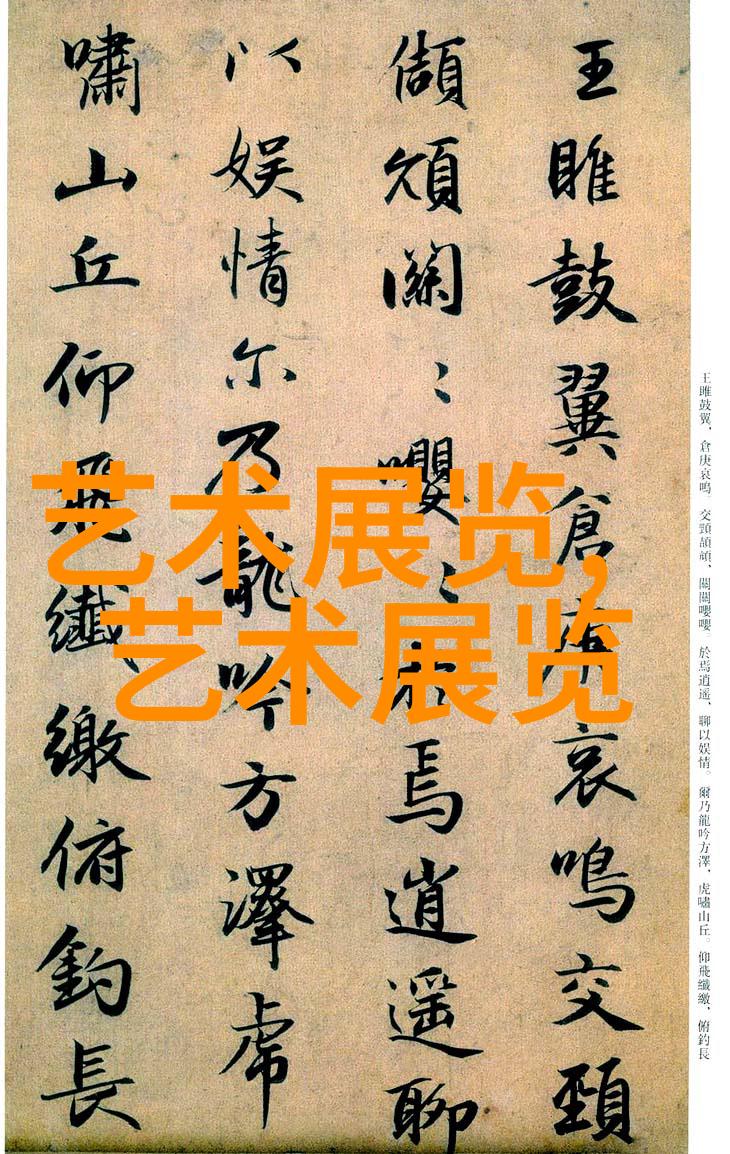 王雎鼓翼倉庚哀鳴交頸
頡頏關〻嚶〻於焉逍遥聊
以娱情尔乃龍吟方澤虎
嘯山丘仰飛纖繳俯釣長
王雎鼓翼、倉庚哀鳴。交頸頡頏、關關嚶嚶。於焉逍遥、聊以娱情。爾乃龍吟方澤、虎嘯山丘。仰飛纖繳、俯釣長
艺术展览,
艺术展览